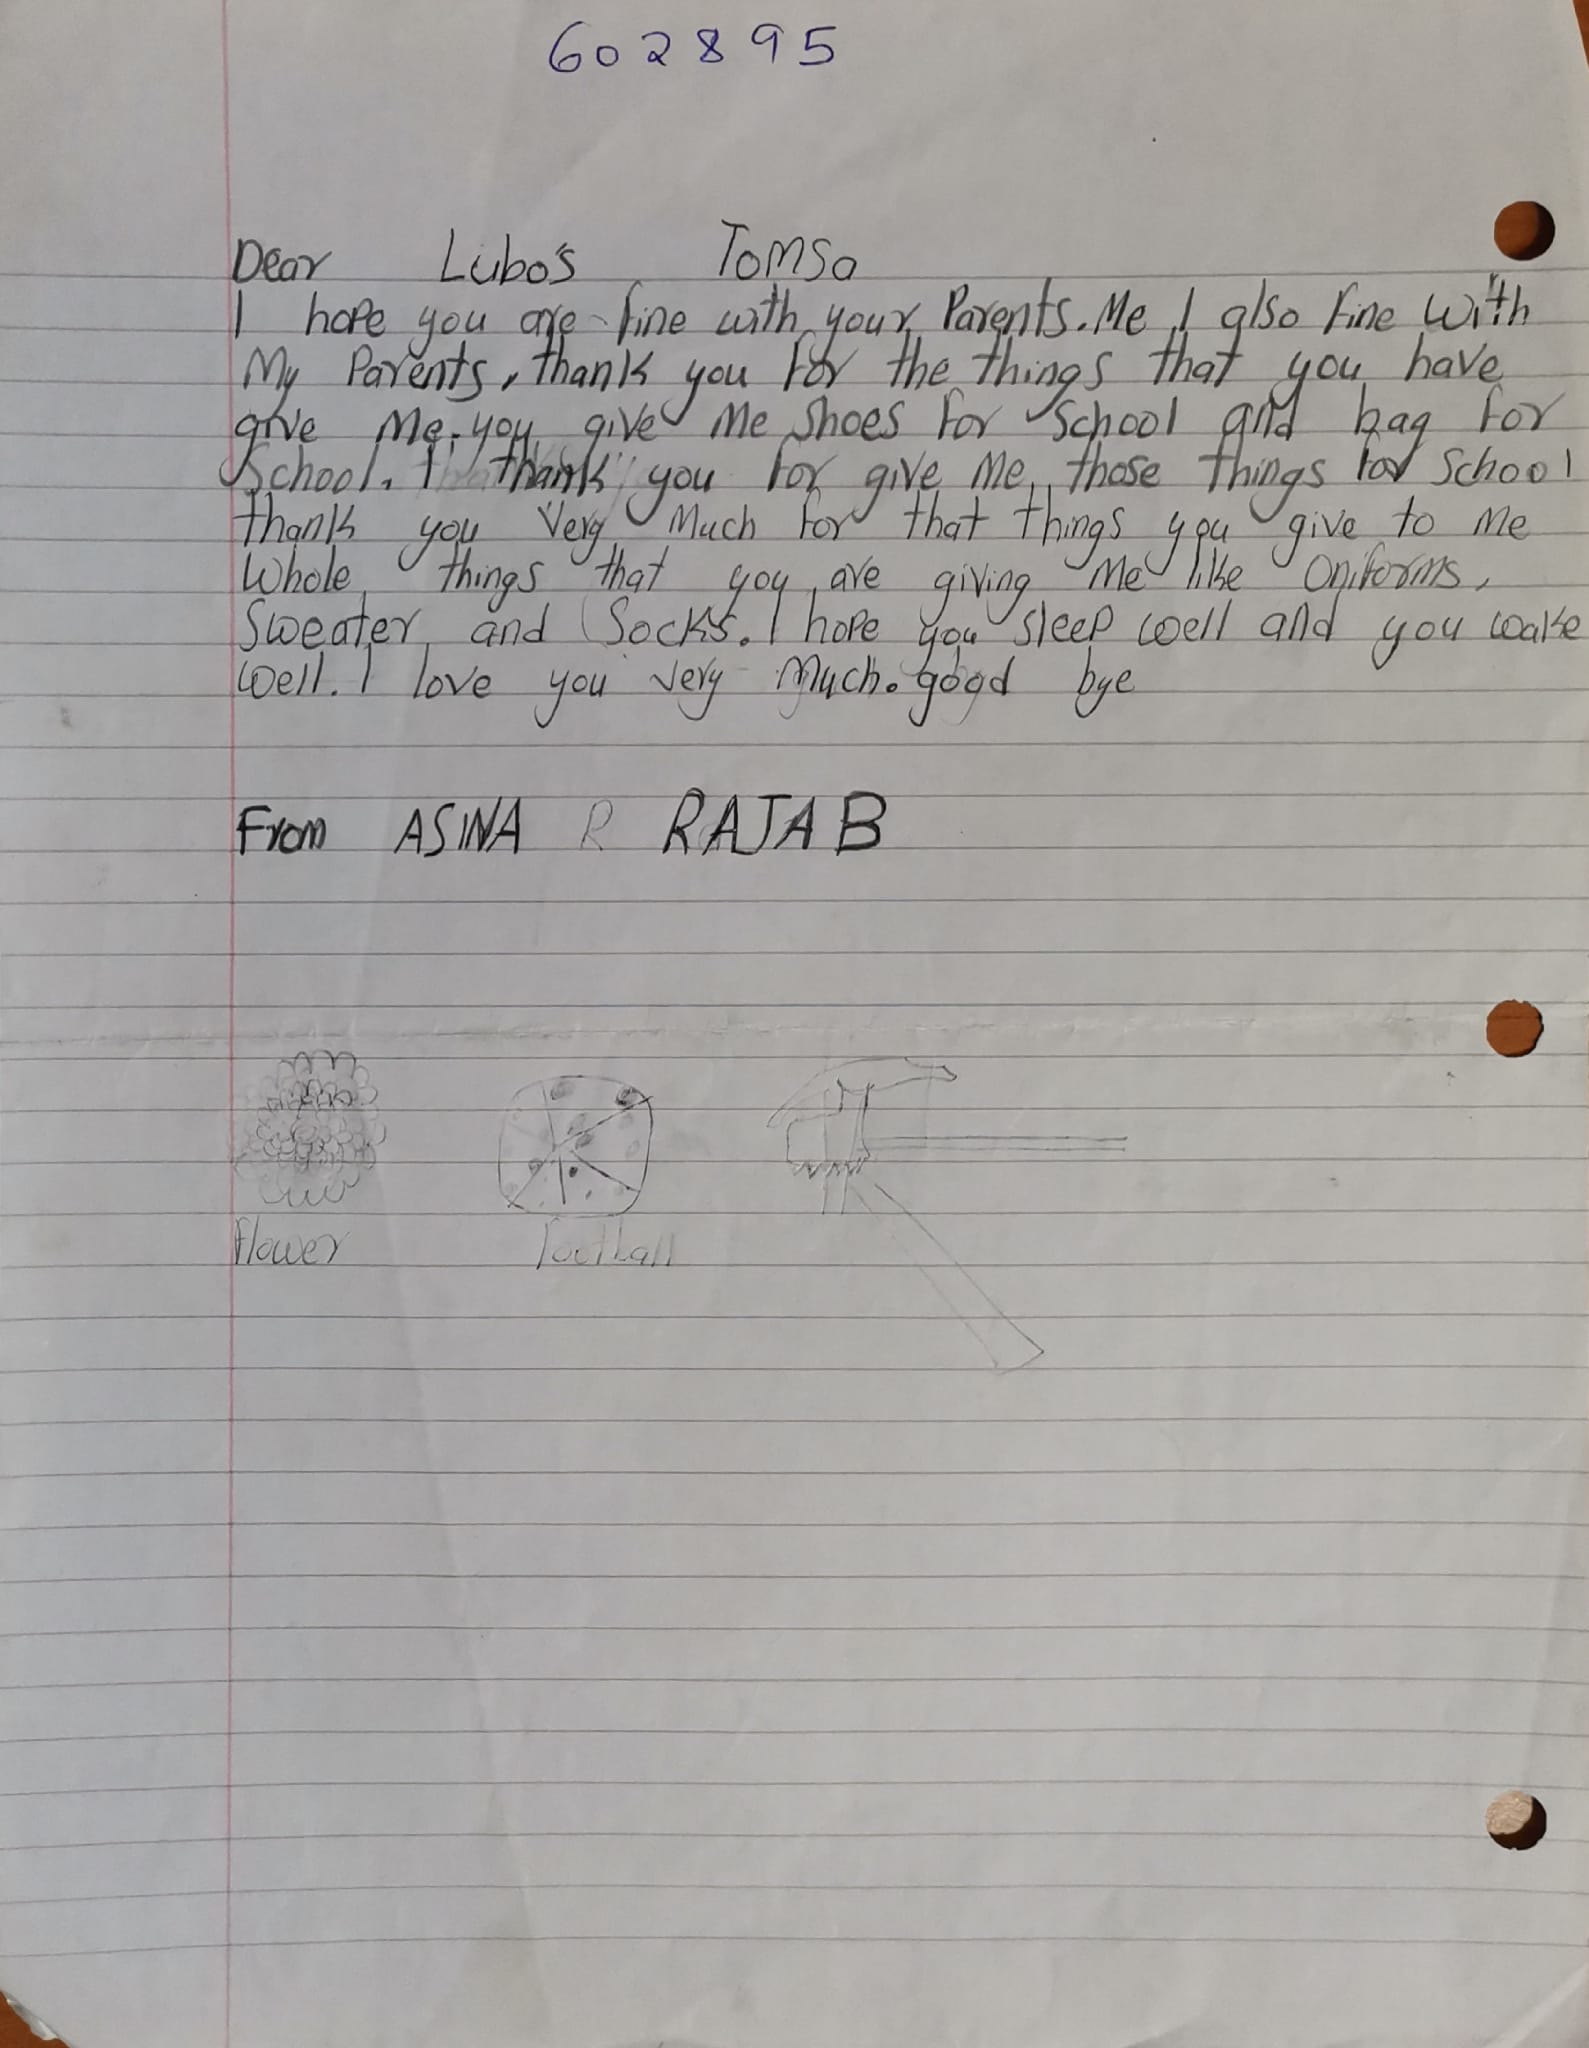 602895
Dear Lubo's Tomsa
I hope you are fine with your Parents. Me I also fine with
My Parents, thank you for the things that you have
give Me. you give Me shoes for School and bag for
School. I thank you for give Me those things for School
thank you very Much for that things you give to Me
Whole things that you are giving Me like Oniforms,
Sweater and Socks. I hope you sleep well and you wake
well. I love you very Much. good bye
From ASINA R RAJAB
Flower Football